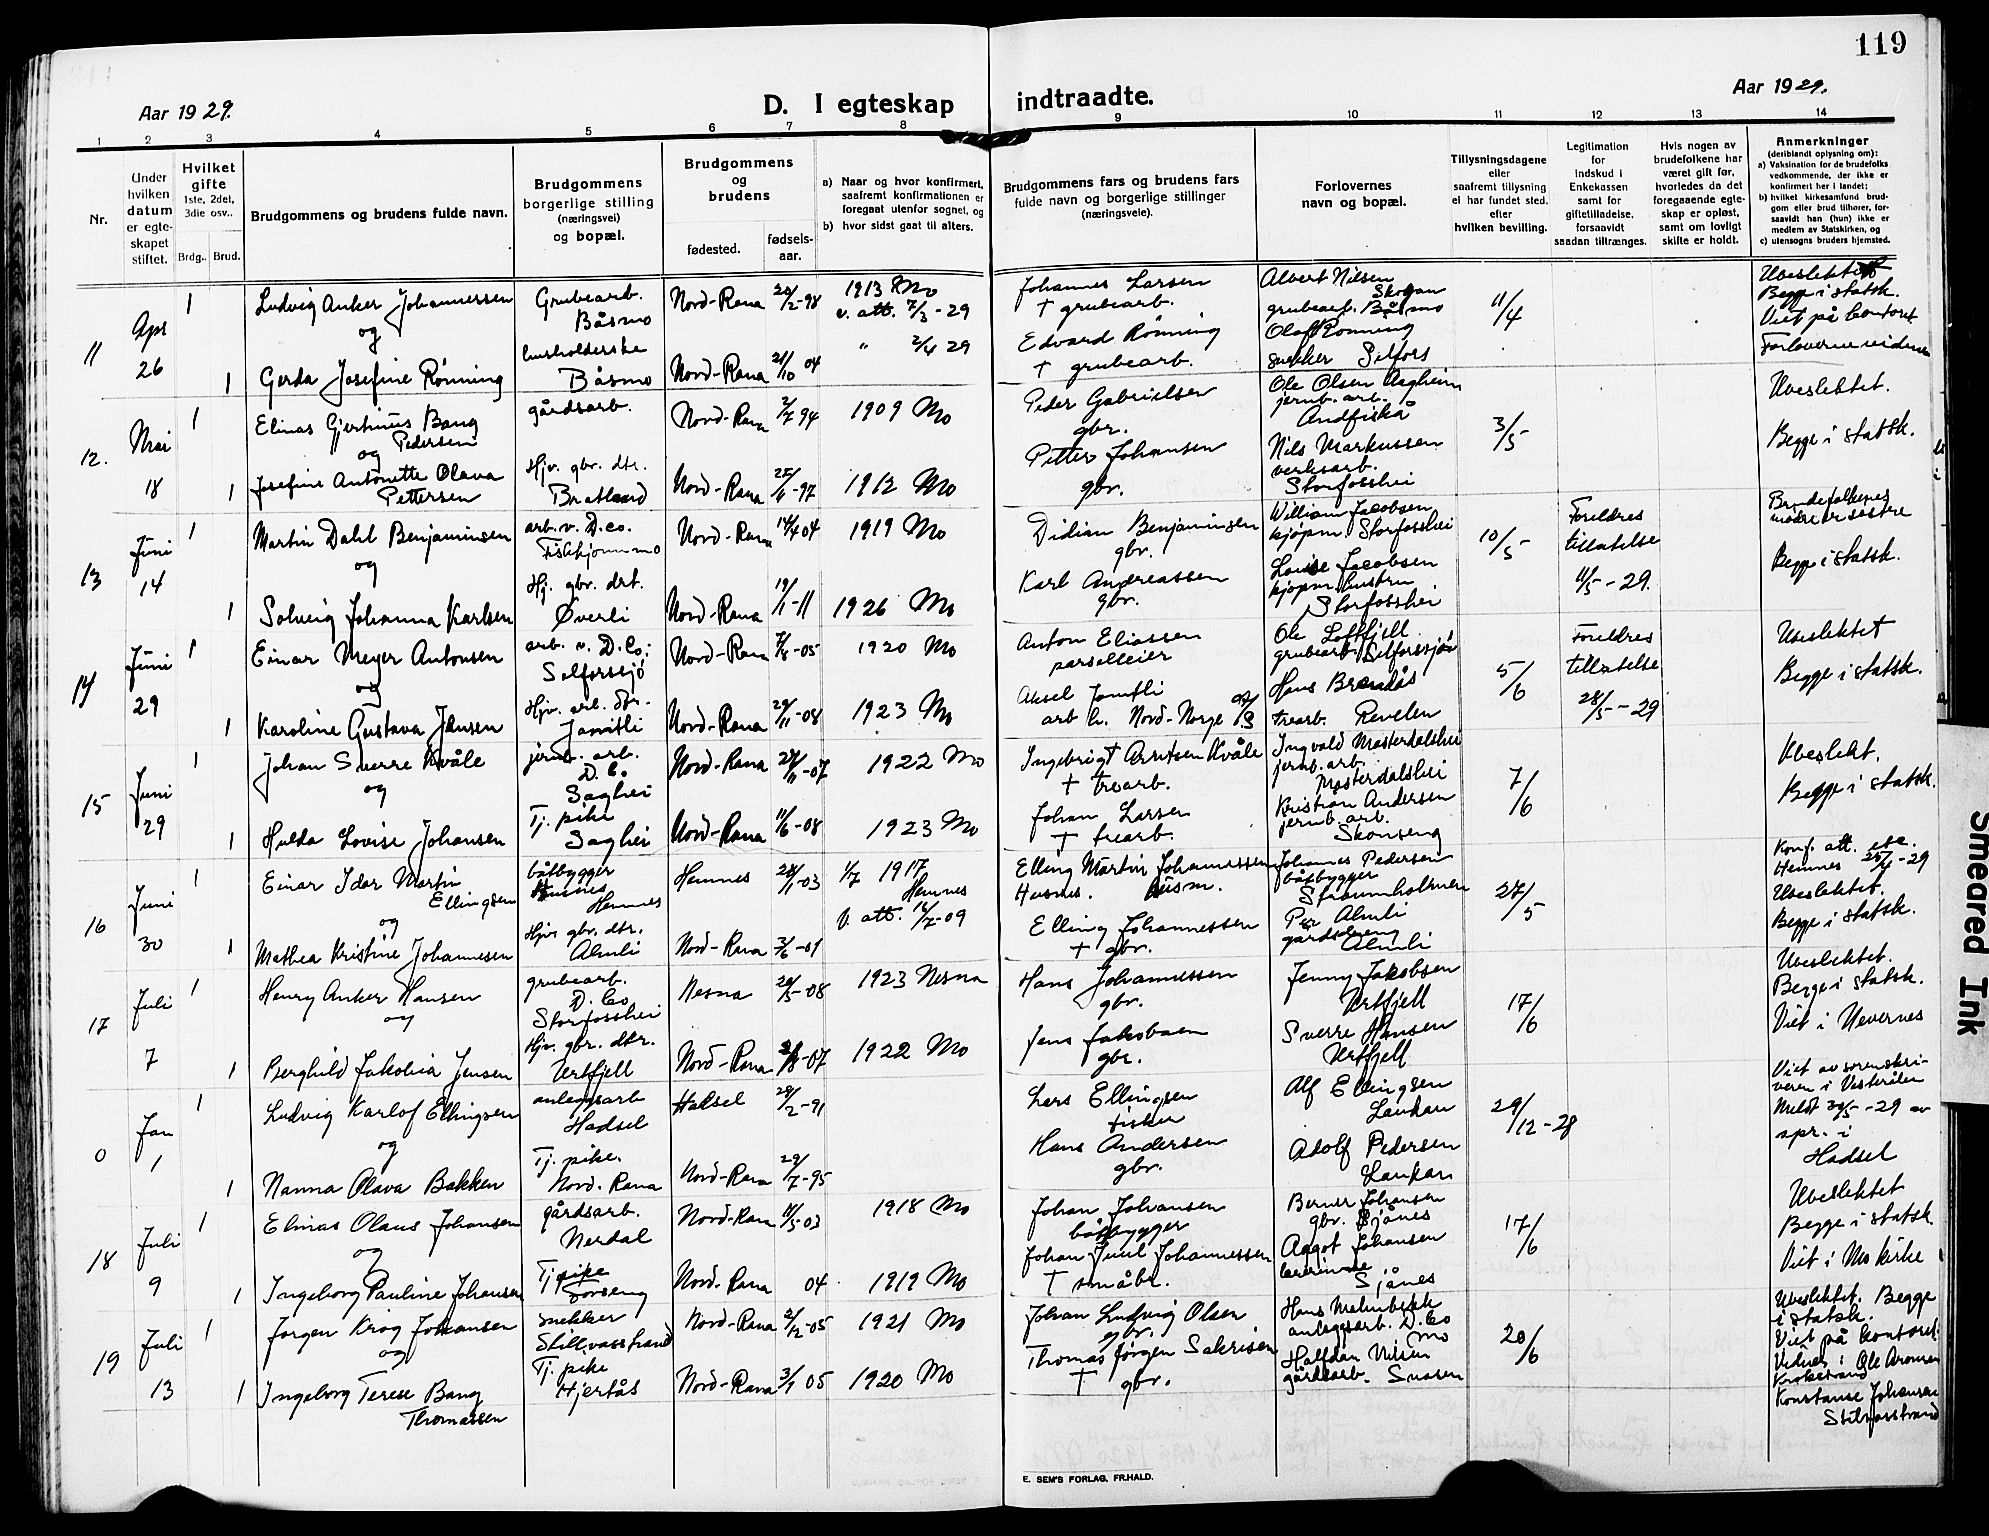 119
Aar 1929.
D. I egteskap indtraadte.
Aar 1929.
1 2 3 4 5 6 7 8 9 10 11 12 13 14
Nr.
Under hvilken datum er egteskapet stiftet.
Hvilket gifte 1ste, 2det, 3die osv..
Brdg.. Brud.
Brudgommens og brudens fulde navn.
Brudgommens borgerlige stilling (næringsvei) og bopæl.
Brudgommens og brudens
fødested. fødsels-aar.
a) Naar og hvor konfirmert, saafremt konfirmationen er foregaat utenfor sognet, og
b) hvor sidst gaat til alters.
Brudgommens fars og brudens fars fulde navn og borgerlige stillinger (næringsveie).
Forlovernes navn og bopæl.
Tillysningsdagene eller saafremt tillysning ei har fundet sted. efter hvilken bevilling.
Legitimation for indskud i Enkekassen samt for giftetilladelse, forsaavidt saadan tiltrænges.
Hvis nogen av brudefolkene har været gift før, hvorledes da det foregaaende egteskap er opløst, samt om lovligt skifte er holdt.
Anmerkninger
(deriblandt oplysning om):
a) Vaksination for de brudefolks vedkommende, der ikke er konfirmert her i landet;
b) hvilket kirkesamfund brudgom eller brud tilhører, forsaavidt han (hun) ikke er medlem av Statskirken, og
c) utensogns bruders hjemsted.
11 Apr 26
1 Ludvig Anker Johannessen
og
1 Gerda Josefine Rønning
Grubearb. Båsmo
husholderske Båsmo
Nord-Rana 2/2-98
Nord-Rana 21/10 04
1913 Mo
v. att. 7/3-29
" 2/4 29
Johannes Larsen
† grubearb.
Edvard Rønning
† grubearb.
Albert Nilsen Skogan
grubearb. Båsmo
Olaf Rønning
snekker Selfors
11/4
Ubeslektet
Begge i statsk.
Viet på kontoret
Forloverne vidner
12. Mai 18
1 Elinas Gjertinus Bang Pedersen
og
1 Josefine Antonette Olava Pettersen
gårdsarb.
Hjv. gbr. dtr. Bratland
Nord-Rana 2/7 94
Nord-Rana 25/11-97
1909 Mo
1912 Mo
Peder Gabrielsen
gbr.
Petter Johansen
gbr.
Ole Olsen Aagheim
jernb. arb. Andfiskå
Nils Markussen
verksarb. Storfosshei
3/5
Ubeslektet.
Begge i statsk.
13 Juni 14
1 Martin Dahl Benjaminsen
og
1 Solveig Johanna Karlsen
arb. v. D. Co. Fiskhjommo
Hj. gbr. dtr. Øverli
Nord-Rana 14/4 04
Nord-Rana 19/1-11
1919 Mo
1926 Mo
Didian Benjaminsen
gbr.
Karl Andreassen
gbr.
William Jacobsen
kjøpm Storfosshei
Louise Jacobsen
kjøpm hustru
Storfosshei
10/5
Foreldres tillatelse 11/5-29.
Brudefolkenes mødre er søstre
Begge i statsk.
14 Juni 29
1 Einar Meyer Antonsen
og
1 Karoline Gustava Jensen
arb. v. D. Co; Selforssjø
Hjv. arb. dtr. Jamtli
Nord-Rana 7/8-05
Nord-Rana 29/11-08
1920 Mo
1923 Mo
Anton Eliassen
parselleier
Aksel Jamtli
arb h. Nord-Norge
Ole Loftfjell
grubearb. Selforssjø
Hans Brendås
trearb. Revelen
5/6
Foreldres tillatelse 28/5-29
Ubeslektet
Begge i statsk.
15 Juni 29
1 Johan Sverre Kvåle
og
1 Hulda Lovise Johansen
jernb. arb. D. Co Saghei
Tj. pike Saghei
Nord-Rana 27/11-07
Nord-Rana 11/6-08
1922 Mo
1923 Mo
Ingebrigt Arntsen Kvåle
† trearb.
Johan Larsen
† trearb.
Ingvald Mosterdalshei
jernb. arb. Mosterdalshei
Kristian Andersen
jernb. arb. Skonseng
7/6
Ubeslekt.
Begge i statsk.
16 Juni 30
1 Einar Idar Martin Ellingsen
og
1 Mathea Kristine Johannesen
båtbygger Hemnes
Hjv. gbr. dtr. Almli
Hemnes 28/1-03
Nord-Rana 3/6-01
1/7 1917 Hemnes
v. att. 16/7-09
Elling Martin Johannessen
Husm.
Elling Johannessen
† gbr.
Johannes Pedersen
båtbygger Straumholmen
Per Almli
gårdsdreng Almli
27/5
Konf. att. etc. Hemnes 25/6-29
Ubeslektet.
Begge i statsk.
17 Juli 7
1 Henry Anker Hansen
og
1 Berghild Jakobia Jensen
grubearb. D. Co Storfosshei
Hjv. gbr. dtr. Urtfjell
Nesna 20/5-08
Nord-Rana 2/8-07
1923 Nesna
1922 Mo
Hans Johannessen
gbr.
Jens Jakobsen
gbr.
Jenny Jakobsen
Urtfjell
Sverre Hansen
Urtfjell
17/6
Ubeslektet.
Begge i statsk.
Viet i Nevernes
0 Jan 1
1 Ludvig Karlof Ellingsen
og
1 Nanna Olava Bakken
anleggsarb Hadsel
Tj. pike. Nord-Rana
Hadsel 28/2-91
Nord-Rana 29/7-95
Lars Ellingsen
fisker
Hans Andersen
gbr.
Alf Ellingsen
Laukan
Adolf Pedersen
Laukan
29/12-28
Viet av sorenskriveren i Vesterålen
Meldt 30/5-29 av spr. i Hadsel
18 Juli 9
1 Elinas Olaus Johansen
og
1 Ingeborg Pauline Johansen
gårdsarb. Nerdal
Tj. pike Torseng
Nord-Rana 11/5-03
Nord-Rana 04
1918 Mo
1919 Mo
Johan Johansen
båtbygger
Johan Juul Johannessen
† småbr.
Berner Johansen
gbr. Sjånes
Aagot Johansen
lærerinne Sjånes
17/6
Ubeslektet
Begge i statsk.
Viet i Mo kirke
19 Juli 13
1 Jørgen Krog Johansen
og
1 Ingeborg Terese Bang Thomassen
snekker Stillvasstrand
Tj. pike Hjertås
Nord-Rana 2/12-05
Nord-Rana 3/1 05
1921 Mo
1920 Mo
Johan Ludvig Olsen
gbr.
Thomas Jørgen Sakrisen
† gbr.
Hans Malmbekk
anleggsarb. D. Co Mo
Halfdan Nilsen
gårdsarb.
20/6
Ubeslektet. Begge i statsk.
Viet på kontoret.
Vidner: Ole Aronsen
Konstanse Johansen
Stilvasstrand
E. SEM'S FORLAG, FR.HALD.
Smeared Ink